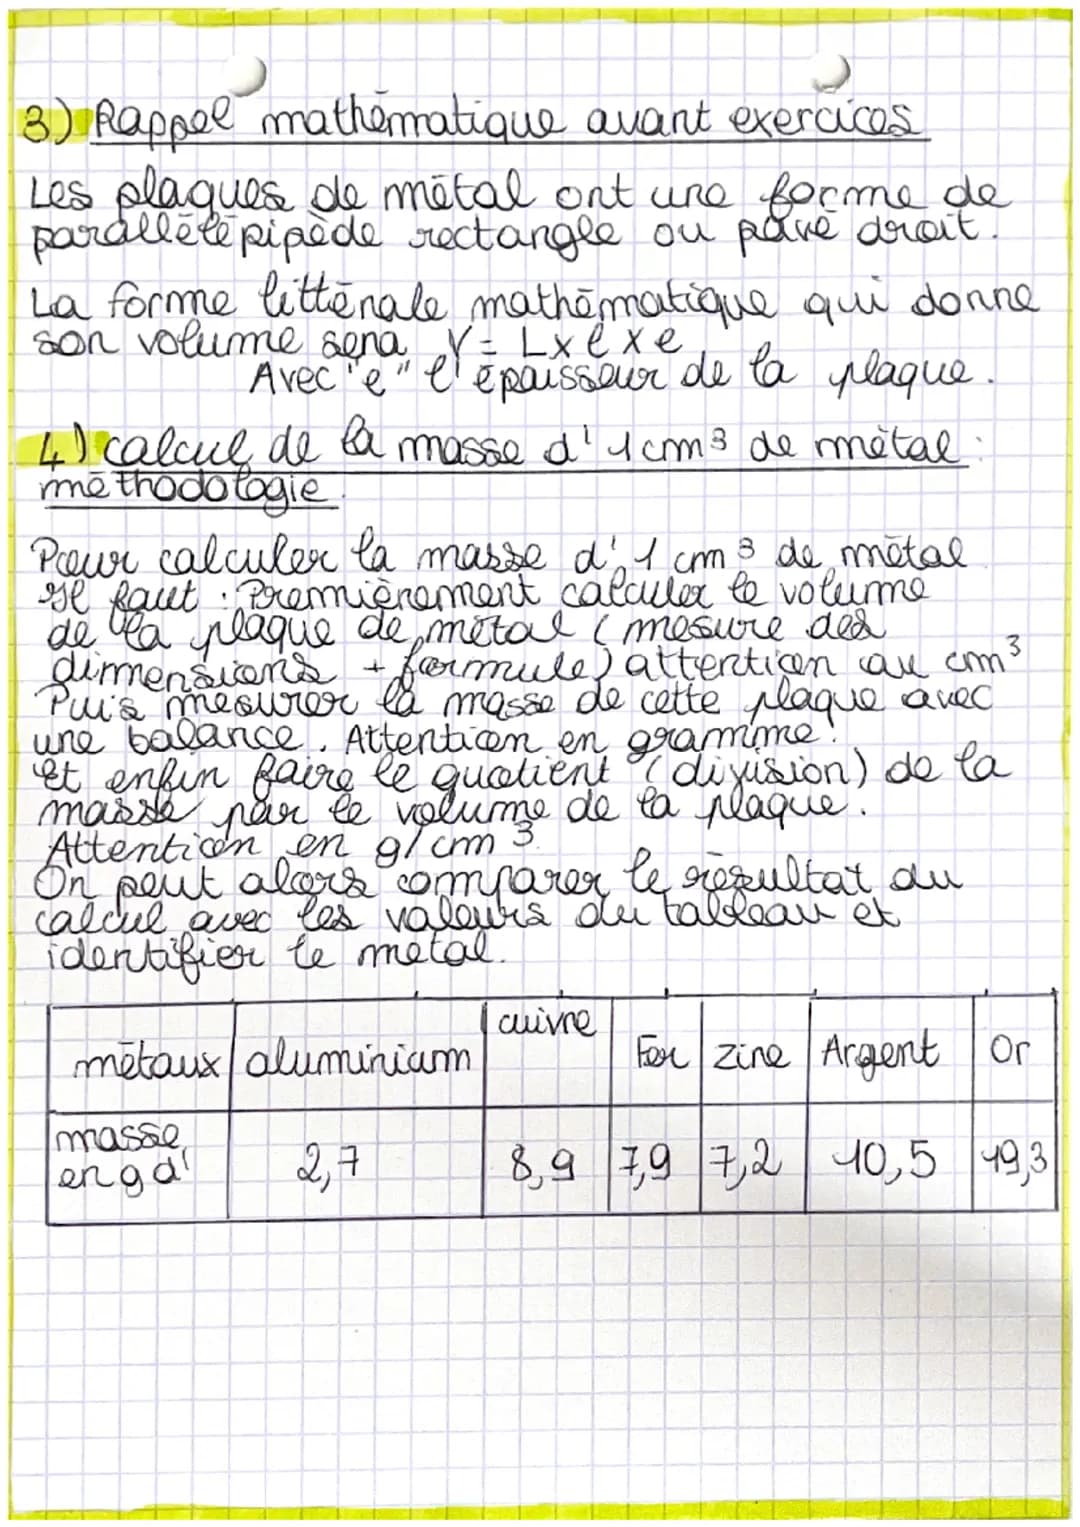 3) Rappel mathématique avant exercices
Les plaques de métal ont une forme de
parallélépipède rectangle ou pavé droit.
La forme littérale mathématique qui donne
son volume sera V = L x l x e
Avec "e" l'épaisseur de la plaque.
4) calcul de la masse d'1 cm³ de métal :
méthodologie.
Pour calculer la masse d'1 cm³ de métal
Il faut : Premièrement calculer le volume
de la plaque de métal (mesure des
dimensions + formule) attention au cm³
Puis mesurer la masse de cette plaque avec
une balance. Attention en gramme!
Et enfin faire le quotient (division) de la
masse par le volume de la plaque.
Attention en g/cm³
On peut alors comparer le résultat du
calcul avec les valeurs du tableau et
identifier le métal.
métaux aluminium cuivre Fer zinc Argent Or
masse
en g d' 2,7 8,9 7,9 7,2 10,5 19,3